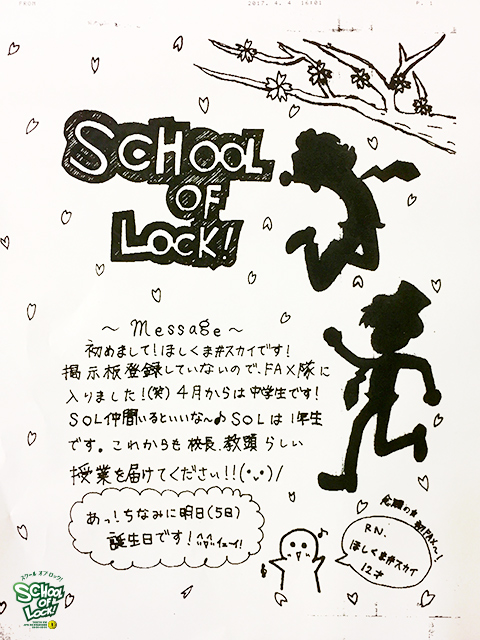 FROM 2017. 4. 4 16:01 P. 1
SCHOOL
OF
LOCK!
～ Message ～
初めまして!ほしくま#スカイです!
掲示板登録していないので、FAX隊に
入りました!(笑) 4月からは中学生です!
SOL仲間いるといいな〜♪ SOLは1年生
です。これからも校長、教頭らしい
授業を届けてください!!(•ᴗ•)/
あっ!ちなみに明日(5日)
誕生日です!^^イェイ!
念願の 初FAX〜!
R.N.
ほしくま#スカイ
12才
スクール オブ ロック!
SCHOOL
OF
LOCK!